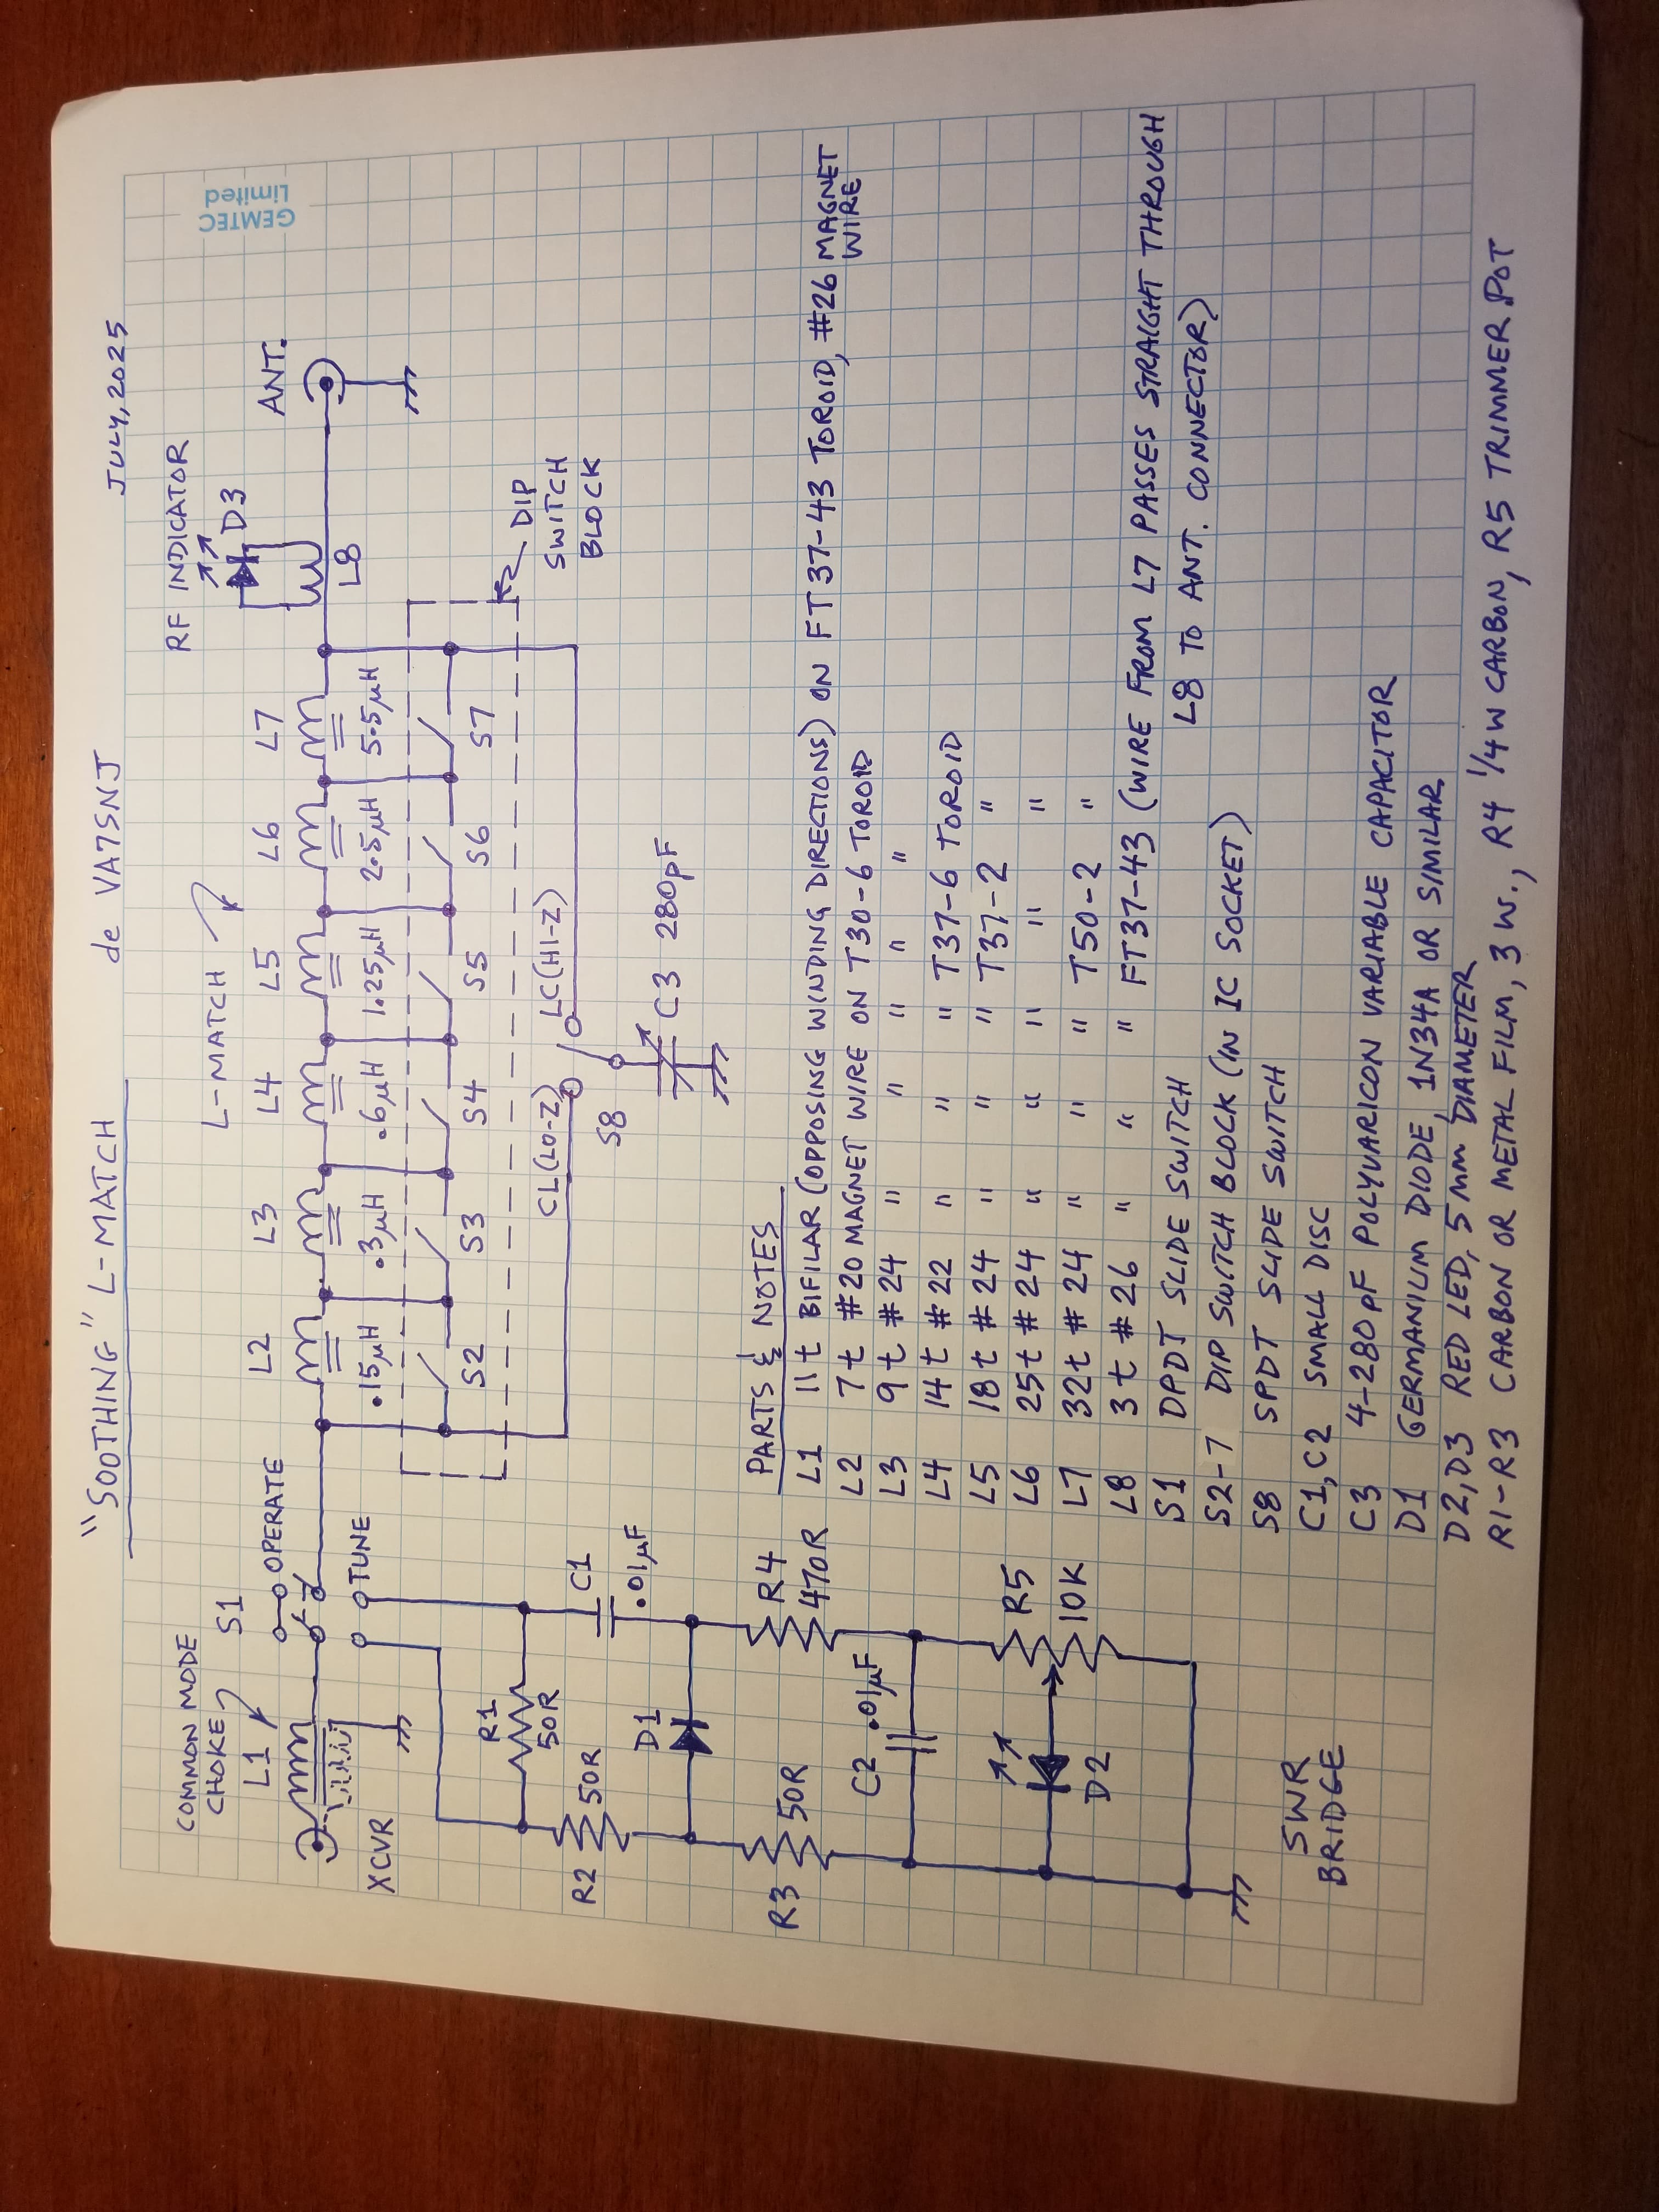 "SOOTHING" L-MATCH de VA7SNJ JULY, 2025
GEMTEC
Limited
COMMON MODE
CHOKE
L1
XCVR
S1
OPERATE
TUNE
L-MATCH
L2 L3 L4 L5 L6 L7
.15µH .3µH .6µH 1.25µH 2.5µH 5.5µH
S2 S3 S4 S5 S6 S7
RF INDICATOR
D3
L8
ANT.
DIP
SWITCH
BLOCK
CL(LO-Z) LC(HI-Z)
S8
C3 280pF
R1
50R
R2 50R
C1
.01µF
D1
R3 50R
R4
470R
C2 .01µF
R5
10K
D2
SWR
BRIDGE
PARTS & NOTES
L1 11t BIFILAR (OPPOSING WINDING DIRECTIONS) ON FT37-43 TOROID, #26 MAGNET
WIRE
L2 7t #20 MAGNET WIRE ON T30-6 TOROID
L3 9t #24 " " " " "
L4 14t #22 " " " T37-6 TOROID
L5 18t #24 " " " T37-2 "
L6 25t #24 " " " " "
L7 32t #24 " " " T50-2 "
L8 3t #26 " " " FT37-43 (WIRE FROM L7 PASSES STRAIGHT THROUGH
L8 TO ANT. CONNECTOR)
S1 DPDT SLIDE SWITCH
S2-7 DIP SWITCH BLOCK (IN IC SOCKET)
S8 SPDT SLIDE SWITCH
C1, C2 SMALL DISC
C3 4-280pF POLYVARICON VARIABLE CAPACITOR
D1 GERMANIUM DIODE, 1N34A OR SIMILAR
D2, D3 RED LED, 5mm DIAMETER
R1-R3 CARBON OR METAL FILM, 3 W., R4 1/4 W CARBON, R5 TRIMMER POT